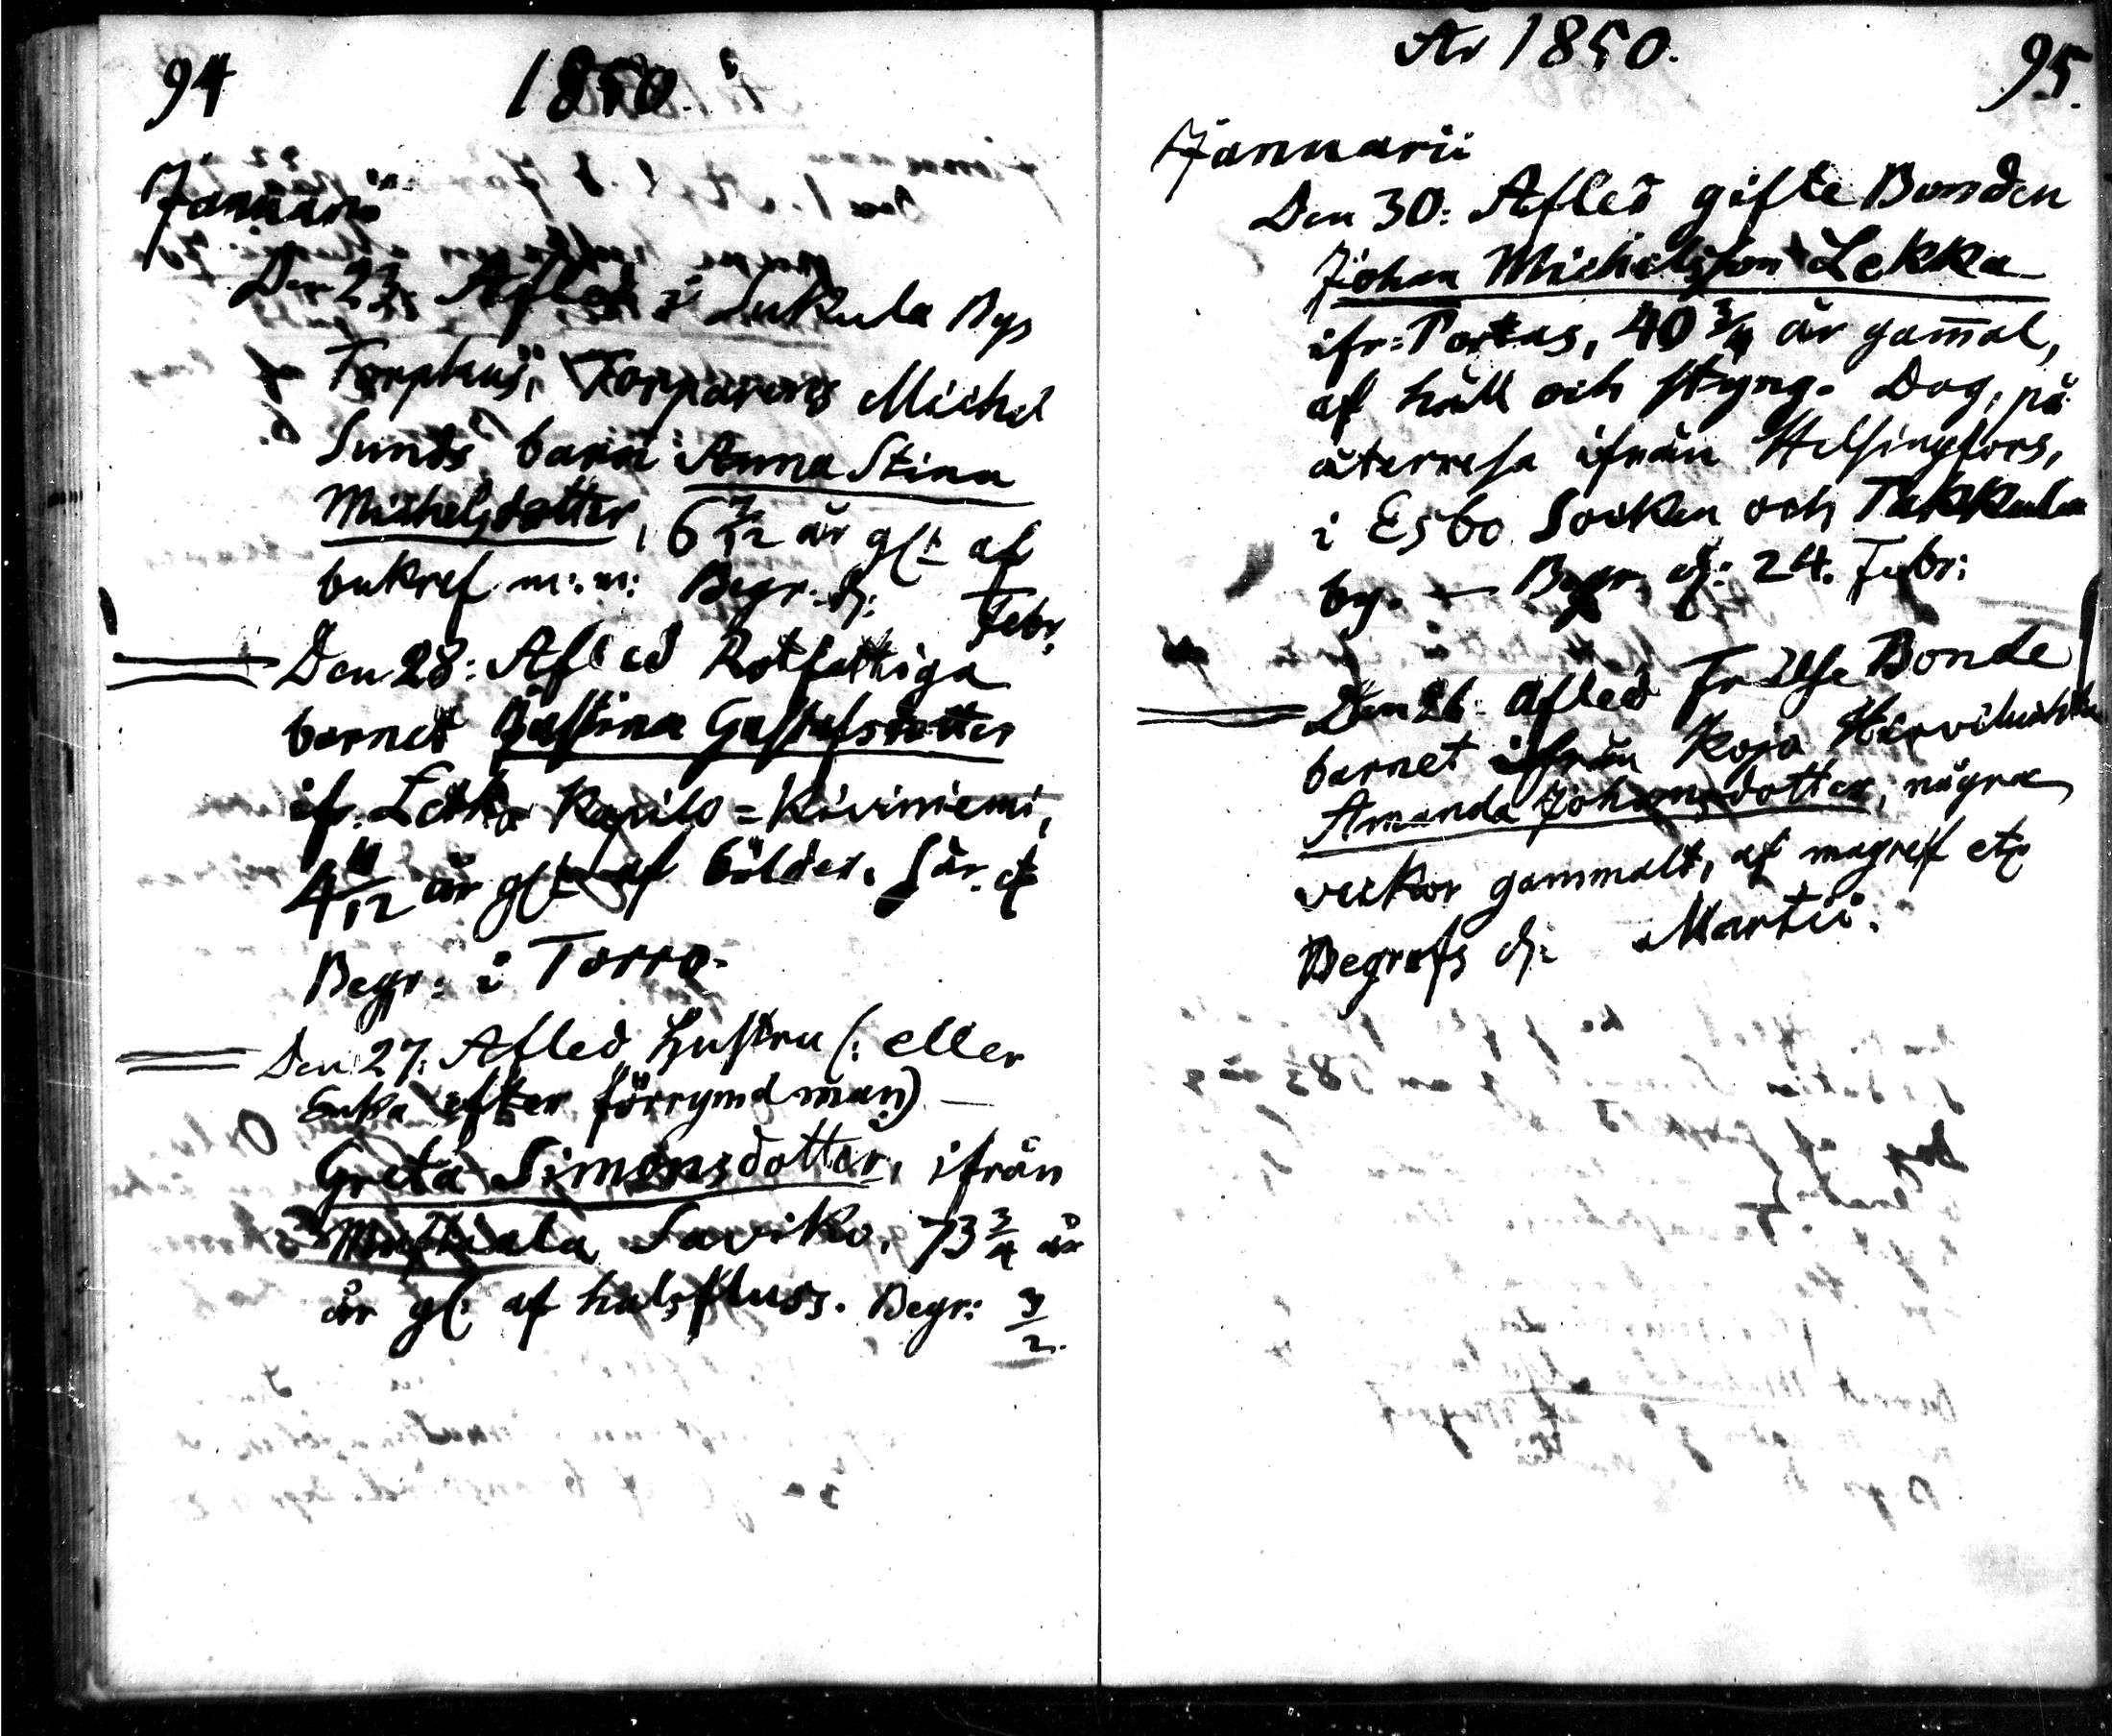 94
1850.
Januarii
Den 23. Afled i Sukula Bys
Torphus, Torparens Michel
Sunds barn: Anna Stina
Michelsdotter, 6 7/12 år gl: af
bukref m: m: Begr: d: Febr.
Den 28: Afled Rotfattiga
barnet Justina Gustafsdotter
ifr. Kavilo=Kiviniemi,
4 /12 år gl: af bölder, sår. etc
Begr: i Torro.
Den 27: Afled Hustru (: eller
Enka efter förrymd man)
Greta Simonsdotter, ifrån
Mustiala Saviko, 73 3/4 år
år gl: af halsfluss. Begr: 3/2.
År 1850.
95.
Januarii
Den 30: Afled gifte Bonden
Johan Michelsson Lekka
ifr: Portas, 40 3/4 år gam̄al,
af håll och styng. Dog, på
återresa ifrån Helsingfors,
i Esbo Socken och Takkula
by. — Begr. d: 24. Febr:
Den 26. Afled Frälse Bonde
barnet ifrån Koja
Amanda Johansdotter, några
veckor gammalt, af magref etc
Begrafs d: Martii.